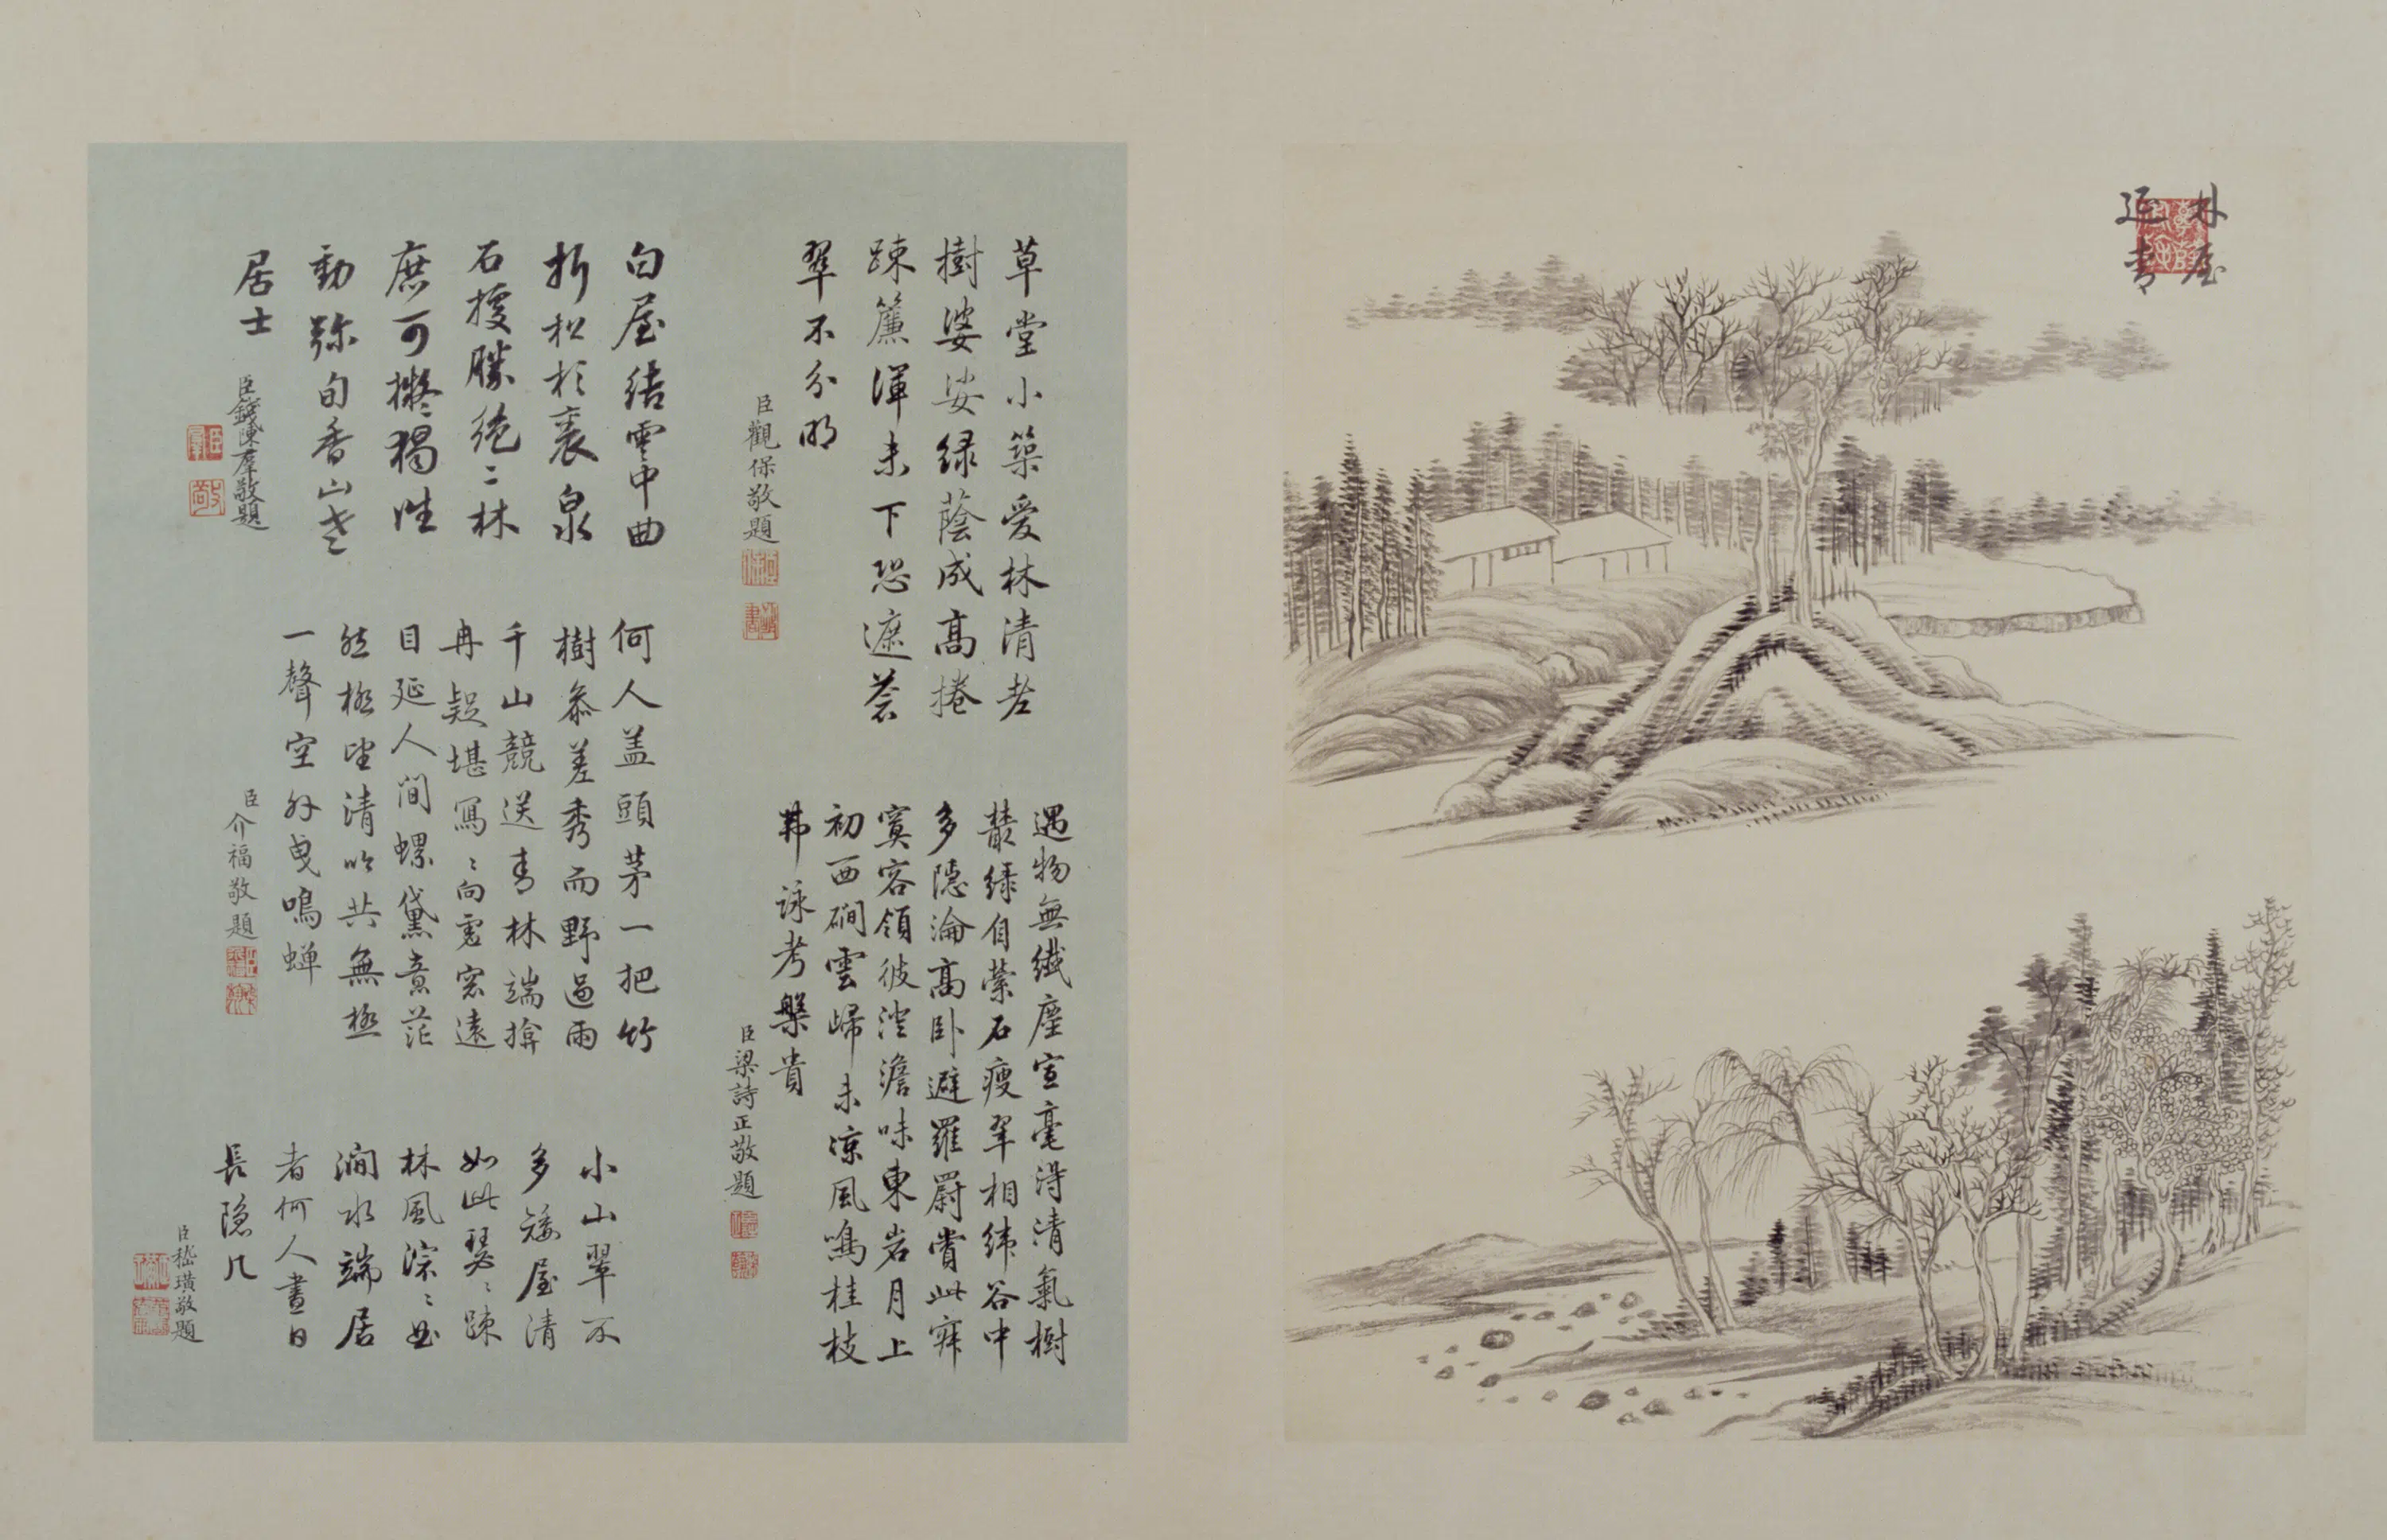 林屋
延青
草堂小築愛林清老
樹婆娑綠蔭成高捲
疎簾渾未下恐遮蒼
翠不分明
臣觀保敬題
遇物無纖塵宣毫得清氣樹
叢綠自縈石瘦翠相緯谷中
多隱淪高卧避羅罻賞此寂
寞容領彼澄澹味東岩月上
初西磵雲歸未涼風鳴桂枝
弗詠考槃貴
臣梁詩正敬題
白屋結雲中曲
折松杉裏泉
石據勝絶二林
庶可擬獨往
動彌旬香山老
居士
臣錢陳羣敬題
何人盖頭茅一把竹
樹參差秀而野過雨
千山競送青林端揜
冉疑堪寫〻向虛窓遠
目延人間螺黛意茫
然極望清吟共無極
一聲空外曳鳴蟬
臣介福敬題
小山翠不
多矮屋清
如此瑟〻疎
林風淙〻曲
澗水端居
者何人晝日
長隱几
臣嵇璜敬題